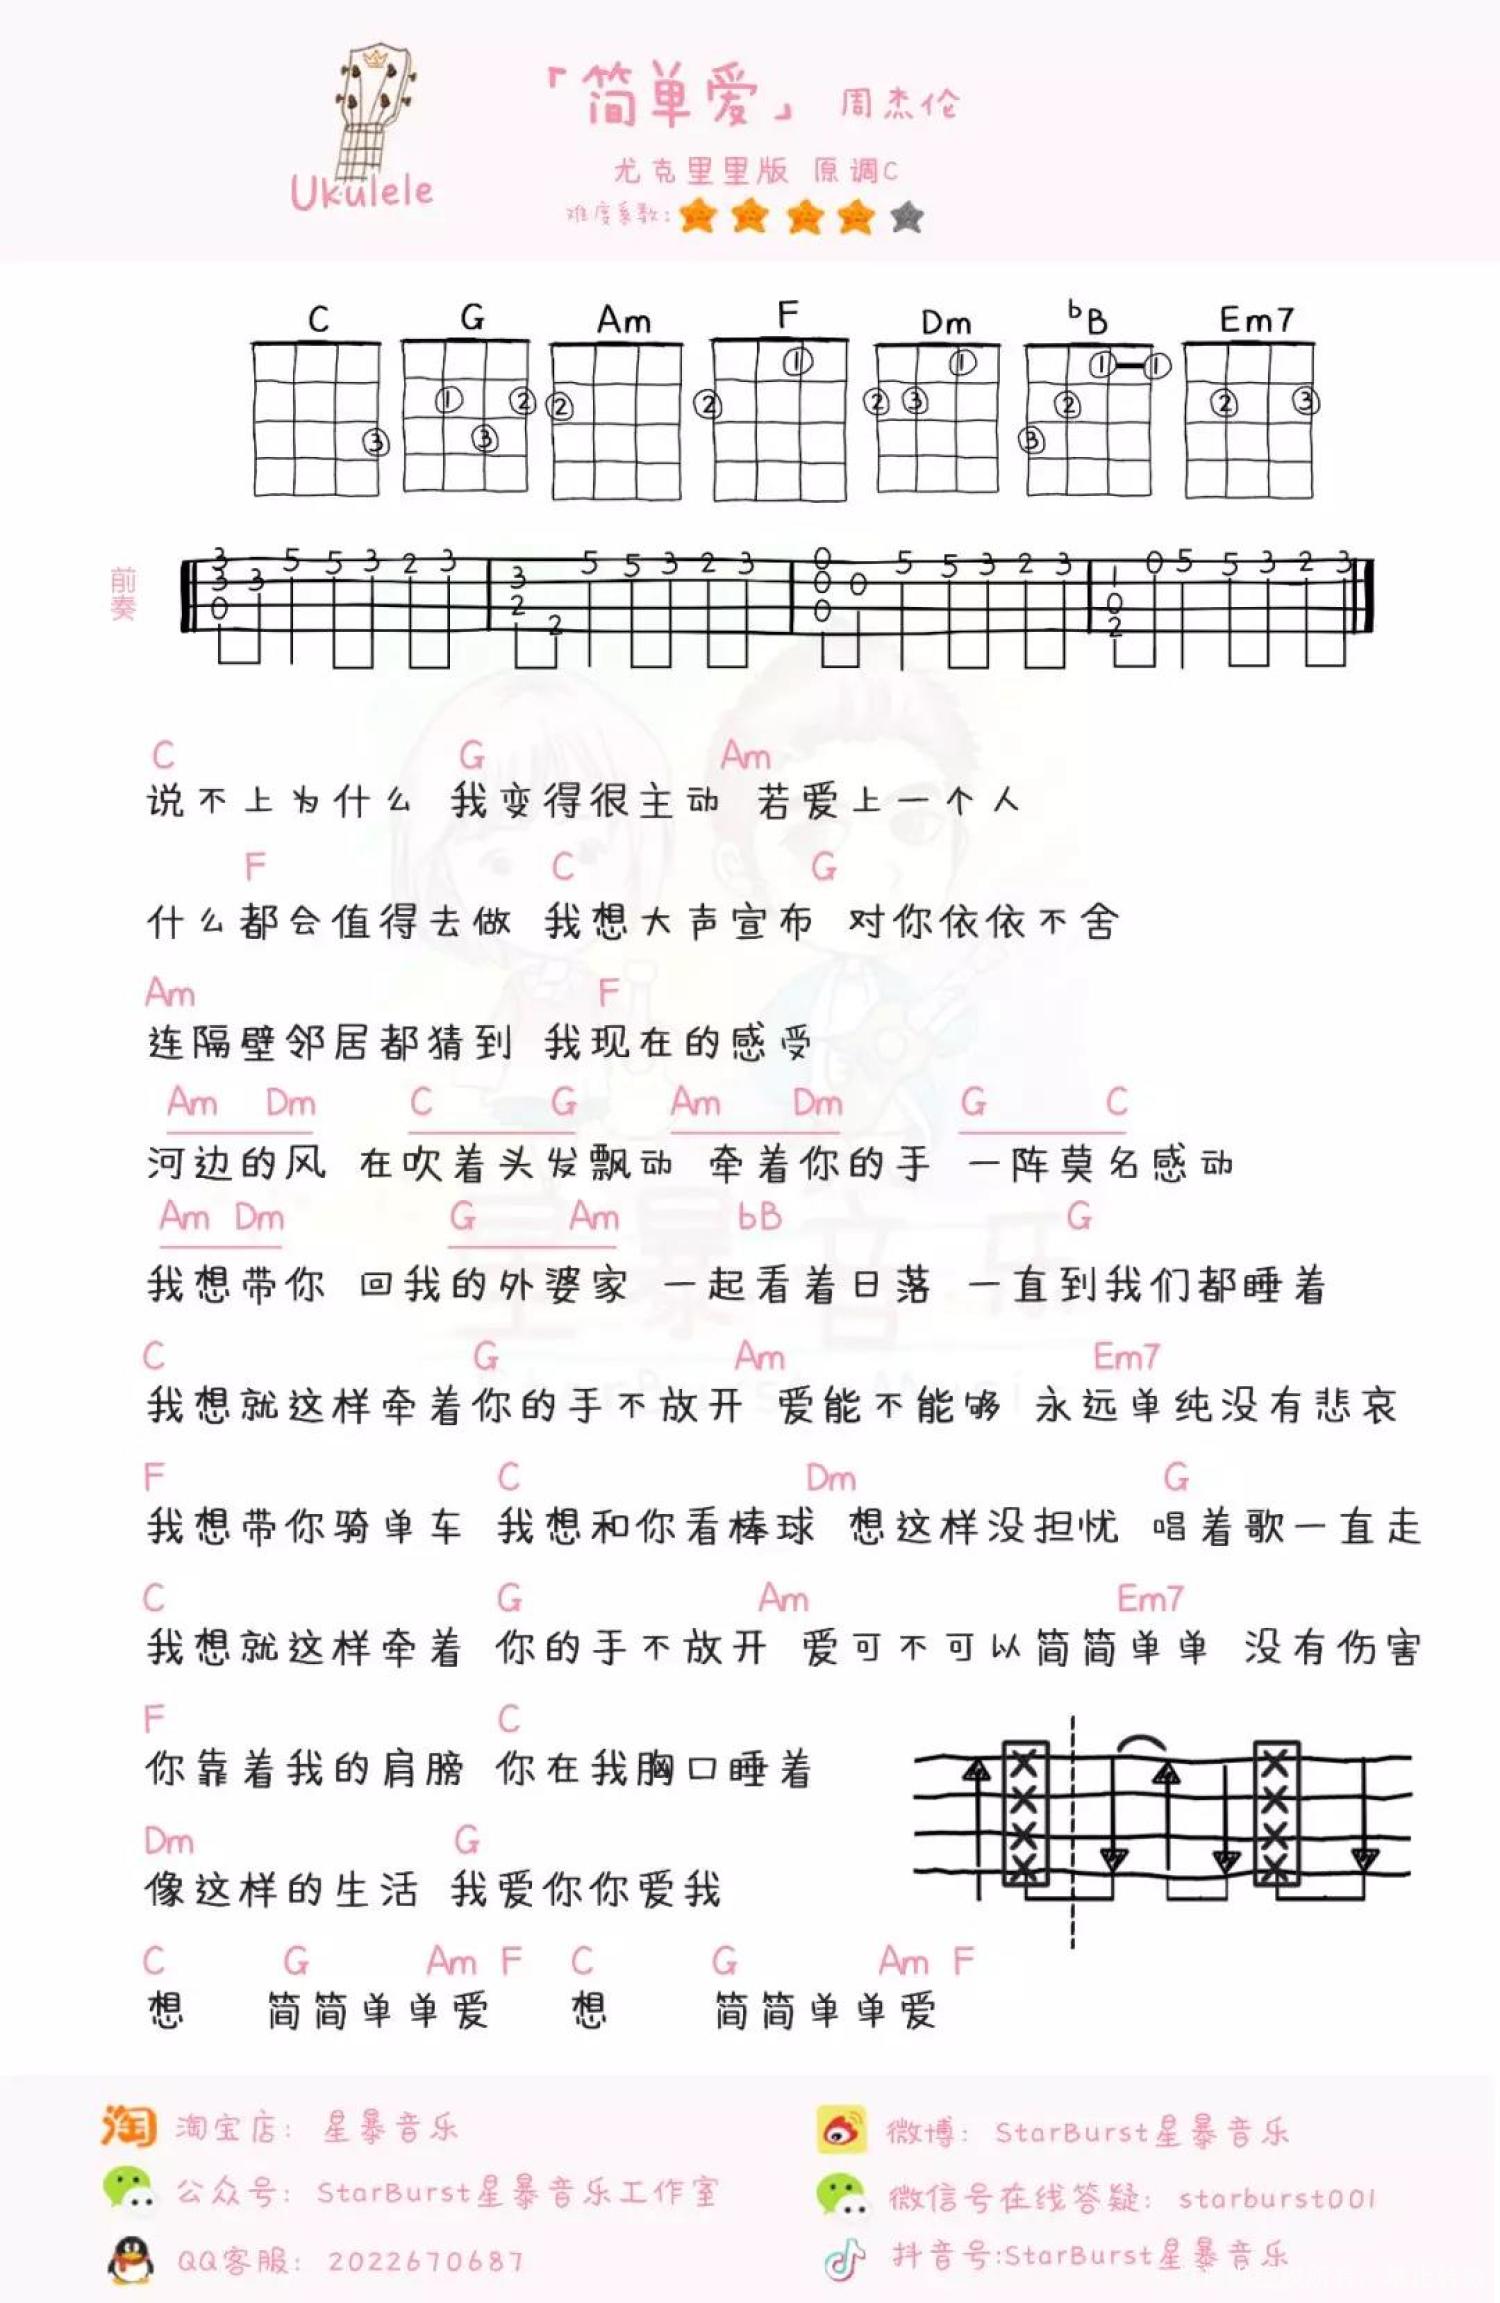 「简单爱」 周杰伦
尤克里里版 原调C
Ukulele
难度系数:
C G Am F Dm bB Em7
3 1 2 3 2 2 1 2 3 1 1 1 2 3 2 3
前奏
3 3 0 3 5 5 3 2 3 3 2 2 5 5 3 2 3 0 0 0 0 5 5 3 2 3 1 0 2 0 5 5 3 2 3
C G Am
说不上为什么 我变得很主动 若爱上一个人
F C G
什么都会值得去做 我想大声宣布 对你依依不舍
Am F
连隔壁邻居都猜到 我现在的感受
Am Dm C G Am Dm G C
河边的风 在吹着头发飘动 牵着你的手 一阵莫名感动
Am Dm G Am bB G
我想带你 回我的外婆家 一起看着日落 一直到我们都睡着
C G Am Em7
我想就这样牵着你的手不放开 爱能不能够 永远单纯没有悲哀
F C Dm G
我想带你骑单车 我想和你看棒球 想这样没担忧 唱着歌一直走
C G Am Em7
我想就这样牵着 你的手不放开 爱可不可以简简单单 没有伤害
F C
你靠着我的肩膀 你在我胸口睡着
Dm G
像这样的生活 我爱你你爱我
C G Am F C G Am F
想 简简单单爱 想 简简单单爱
星暴音乐
StarBurst Music
淘 淘宝店: 星暴音乐
微博: StarBurst星暴音乐
公众号: StarBurst星暴音乐工作室
微信号在线答疑: starburst001
QQ客服: 2022670687
抖音号:StarBurst星暴音乐